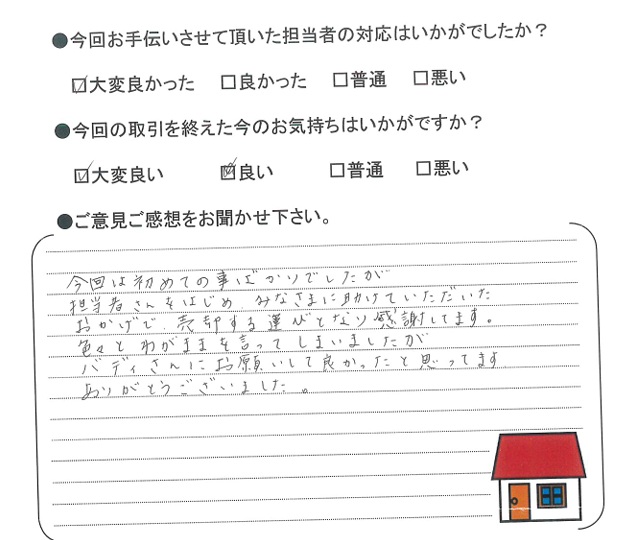 ●今回お手伝いさせて頂いた担当者の対応はいかがでしたか？
☑大変良かった □良かった □普通 □悪い
●今回の取引を終えた今のお気持ちはいかがですか？
☑大変良い ☑良い □普通 □悪い
●ご意見ご感想をお聞かせ下さい。
今回は初めての事ばかりでしたが
担当者さんをはじめ、みなさまに助けていただいた
おかげで、売却する運びとなり感謝してます。
色々とわがままを言ってしまいましたが
バディさんにお願いして良かったと思ってます
ありがとうございました。